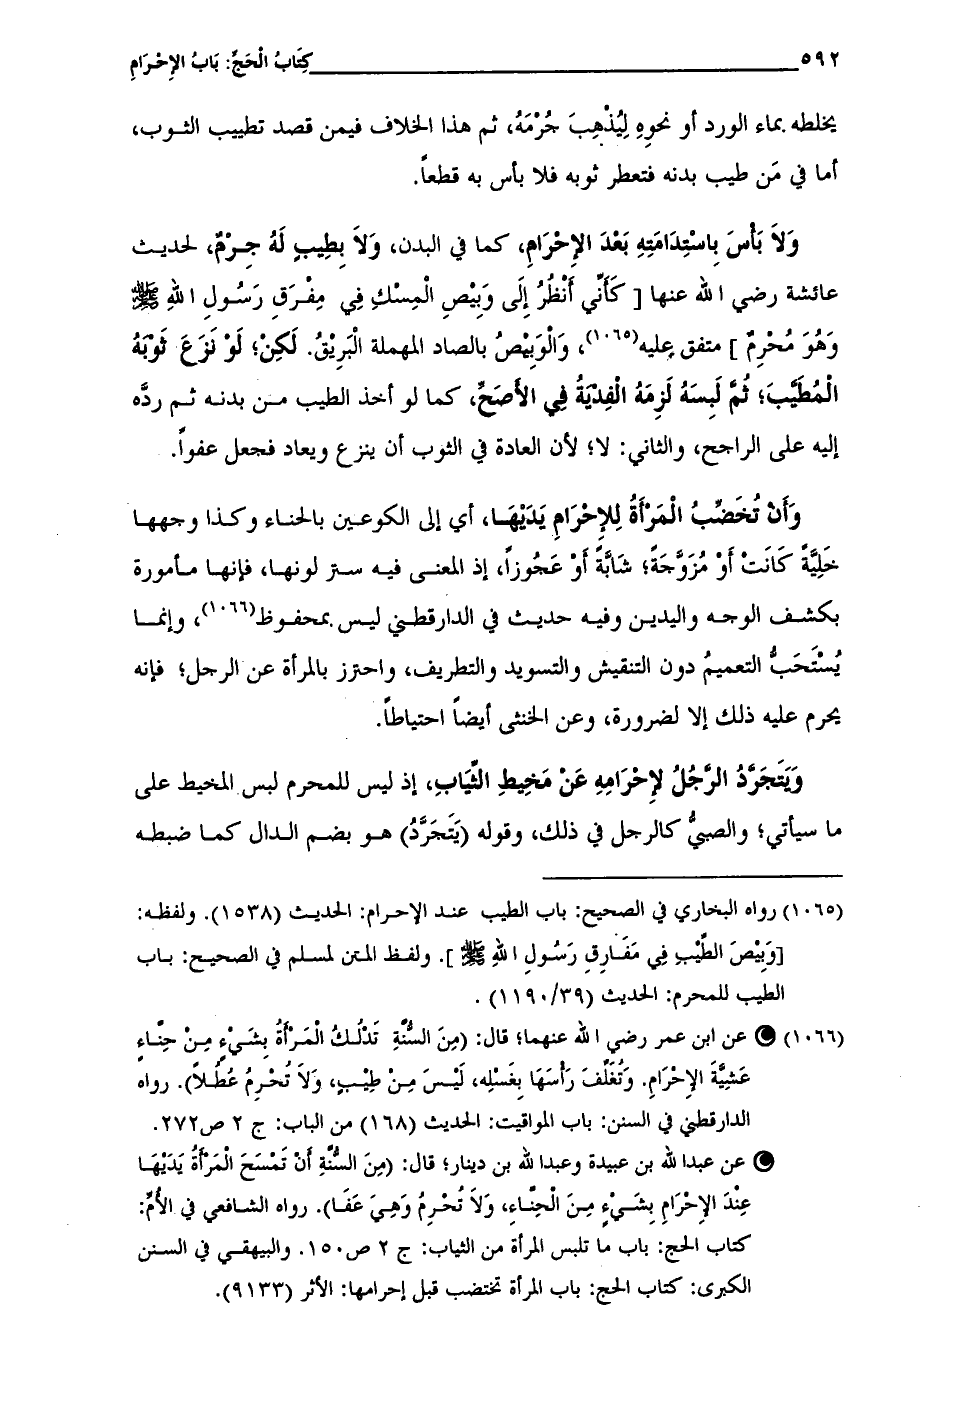 ٥٩٢ كِتَابُ الْحَجِّ: بَابُ الإِحْرَامِ
يخلطه بماء الورد أو نحوِهِ لِيُذْهِبَ جُرْمَهُ، ثم هذا الخلاف فيمن قصد تطييب الثوب،
أما في مَن طيب بدنه فتعطر ثوبه فلا بأس به قطعاً.
وَلاَ بَأْسَ بِاسْتِدَامَتِهِ بَعْدَ الإِحْرَامِ، كما في البدن، وَلاَ بِطِيبٍ لَهُ جِرْمٌ، لحديث
عائشة رضي الله عنها [ كَأَنِّي أَنْظُرُ إِلَى وَبِيْصِ الْمِسْكِ فِي مِفْرَقِ رَسُولِ اللهِ ﷺ
وَهُوَ مُحْرِمٌ ] متفق عليه(١٠٦٥)، وَالْوَبِيْصُ بالصاد المهملة الْبَرِيْقُ. لَكِنْ؛ لَوْ نَزَعَ ثَوْبَهُ
الْمُطَيَّبَ؛ ثُمَّ لَبِسَهُ لَزِمَهُ الْفِدْيَةُ فِي الأَصَحِّ، كما لو أخذ الطيب من بدنه ثم ردَّه
إليه على الراجح، والثاني: لا؛ لأن العادة في الثوب أن ينزع ويعاد فجعل عفواً.
وَأَنْ تُخَضِّبُ الْمَرْأَةُ لِلإِحْرَامِ يَدَيْهَا، أي إلى الكوعين بالحناء وكذا وجهها
خَلِيَّةً كَانَتْ أَوْ مُزَوَّجَةً؛ شَابَّةً أَوْ عَجُوزاً، إذ المعنى فيه ستر لونها، فإنها مأمورة
بكشف الوجه واليدين وفيه حديث في الدارقطني ليس بمحفوظ(١٠٦٦)، وإنما
يُسْتَحَبُّ التعميمُ دون التنقيش والتسويد والتطريف، واحترز بالمرأة عن الرجل؛ فإنه
يحرم عليه ذلك إلا لضرورة، وعن الخنثى أيضاً احتياطاً.
وَيَتَجَرَّدُ الرَّجُلُ لإِحْرَامِهِ عَنْ مَخِيطِ الثِّيَابِ، إذ ليس للمحرم لبس المخيط على
ما سيأتي؛ والصبيُّ كالرجل في ذلك، وقوله (يَتَجَرَّدُ) هو بضم الدال كما ضبطه
(١٠٦٥) رواه البخاري في الصحيح: باب الطيب عند الإحرام: الحديث (١٥٣٨). ولفظه:
[وَبِيْصَ الطِّيْبِ فِي مَفَارِقِ رَسُولِ اللهِ ﷺ ]. ولفظ المتن لمسلم في الصحيح: باب
الطيب للمحرم: الحديث (١١٩٠/٣٩) .
(١٠٦٦) عن ابن عمر رضي الله عنهما؛ قال: (مِنَ السُّنَّةِ تَدْلُكُ الْمَرْأَةُ بِشَيْءٍ مِنْ حِنَّاءٍ
عَشِيَّةَ الإِحْرَامِ. وَتُغَلِّفَ رَأْسَهَا بِغَسْلِهِ، لَيْسَ مِنْ طِيْبٍ، وَلاَ تُحْرِمُ عُطُلاً). رواه
الدارقطني في السنن: باب المواقيت: الحديث (١٦٨) من الباب: ج ٢ ص٢٧٢.
عن عبدالله بن عبيدة وعبدالله بن دينار؛ قال: (مِنَ السُّنَّةِ أَنْ تَمْسَحَ الْمَرْأَةُ يَدَيْهَا
عِنْدَ الإِحْرَامِ بِشَيْءٍ مِنَ الْحِنَّاءِ، وَلاَ تُحْرِمُ وَهِيَ عَفَا). رواه الشافعي في الأُمِّ:
كتاب الحج: باب ما تلبس المرأة من الثياب: ج ٢ ص١٥٠. والبيهقي في السنن
الكبرى: كتاب الحج: باب المرأة تختضب قبل إحرامها: الأثر (٩١٣٣).